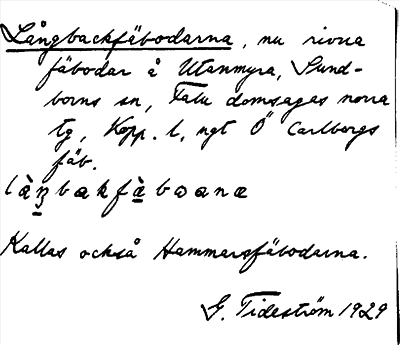 Långbackfäbodarna, nu rivna
fäbodar å Utanmyra, Sund-
borns sn, Falu domsagas norra
tg, Kopp. l, ngt Ö Carlbergs
fäb.
làŋbakfàboana
Kallas också Hammarsfäbodarna.
G. Tideström 1929